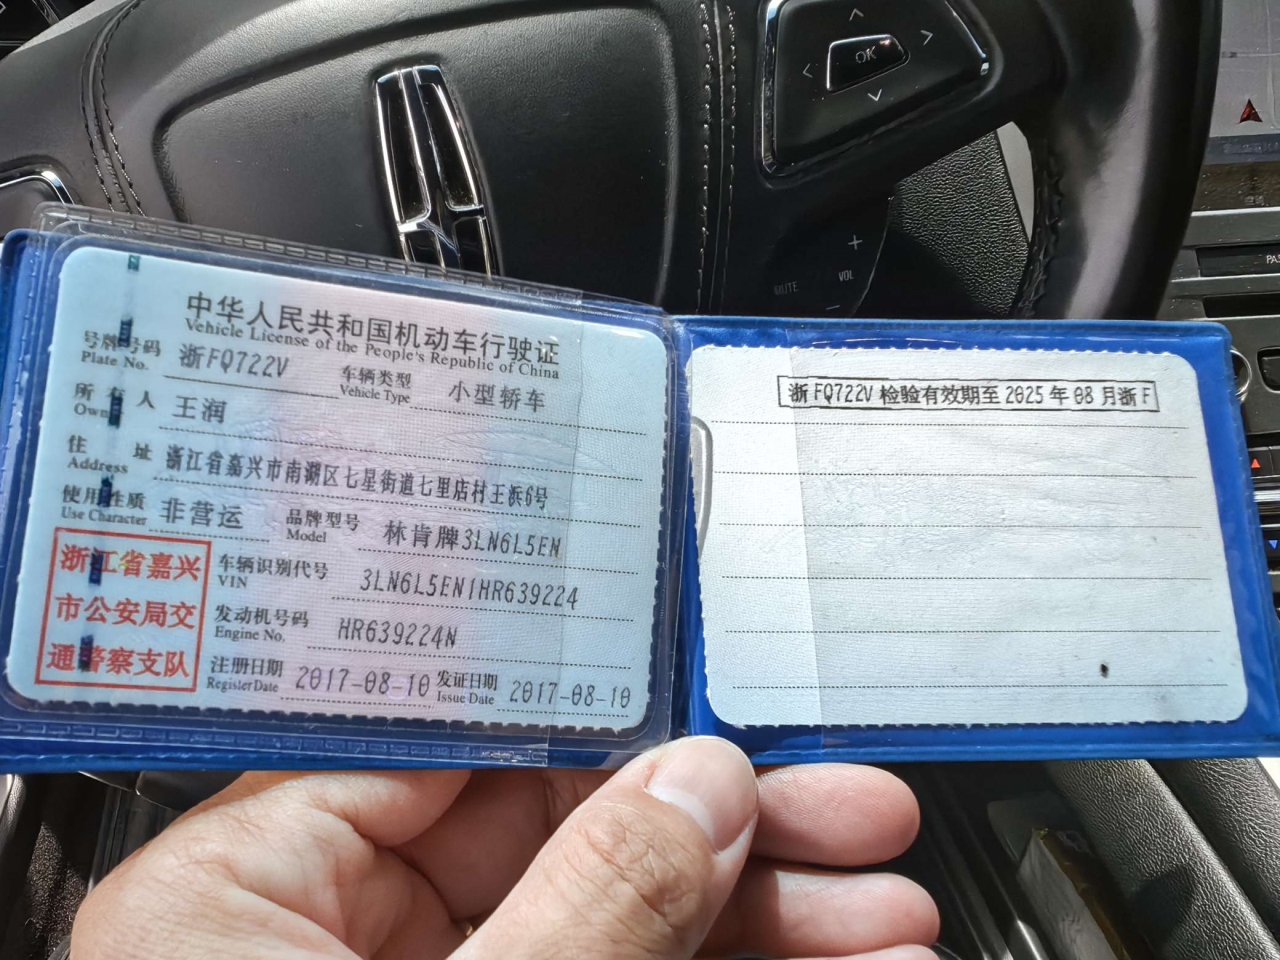 OK
MUTE
VOL
+
PAS
中华人民共和国机动车行驶证
Vehicle License of the People's Republic of China
号牌号码 浙FQ722V 车辆类型 小型轿车
Plate No. Vehicle Type
所有人 王润
Owner
住址 浙江省嘉兴市南湖区七星街道七里店村王浜6号
Address
使用性质 非营运 品牌型号 林肯牌3LN6L5EN
Use Character Model
浙江省嘉兴
市公安局交
通警察支队
车辆识别代号 3LN6L5EN1HR639224
VIN
发动机号码 HR639224N
Engine No.
注册日期 2017-08-10 发证日期 2017-08-10
Register Date Issue Date
浙FQ722V 检验有效期至 2025 年 08 月浙F